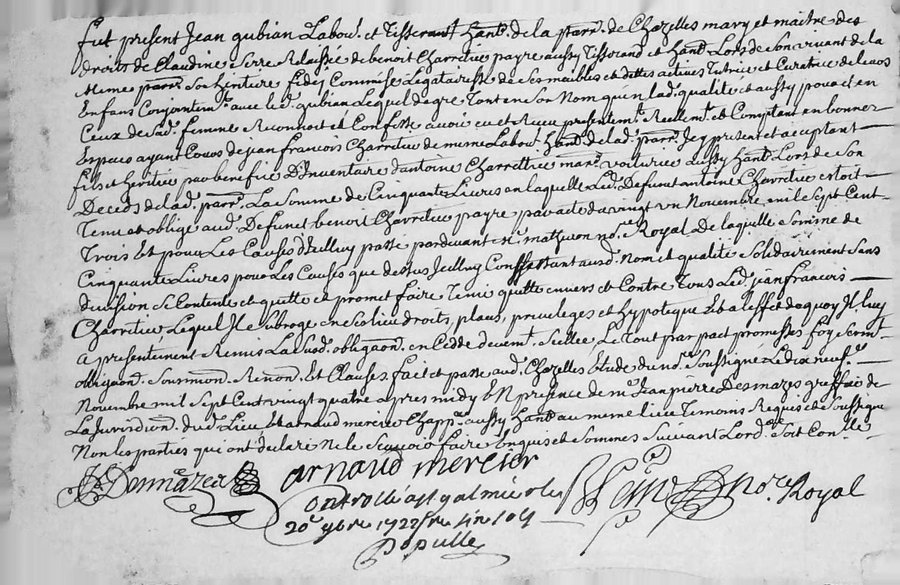 fut present Jean gubian Labou.r et Tisserant hant. de la parr.e de Chazelles mary et maitre des
droits de Claudine Serre Relaissée de benoit Charretier payre aussy Tisserand et hant. Lors de son vivant de la
meme parr.e Son heritiere fidei Commise Legataresse de Ses meubles et dettes actives Tutrice et Curatrice de Leurs
Enfans Conjointem.t avec led. gubian Lequel de gre Tant en Son Nom qu'en lad. qualité et aussy pour et en
Ceux de sad. femme Reconnoit et Confesse avoir eu et Receu presentem.t Reellem.t et Comptant en bonnes
Especes ayant Cours de jean francois Charretier de meme Labou.r hant. de lad. parr.e Jcy present et aceptant
fils et heritier par benefice D'Inventaire d'antoine Charrettier mar. voiturier aussy hant. Lors de Son
Deceds de lad. parr.e La Somme de Cinquante Livres en laquelle Led. Defunt antoine Charretier estoit
Tenu et obligé aud. Defunct benoit Charretier payre par acte du vingt un Novembre mil Sept Cent
Trois Et pour Les Causes d'Jcelluy passé pardevant m.e mathevon no.re Royal De laquelle Somme de
Cinquante Livres pour Les Causes que dessus Jcelluy Confessant ausd. nom et qualité Solidairement Sans
division Se Contente et quitte et promet faire Tenir quitte envers et Contre Tous Led. jean francois
Charretier Lequel Jl Subroge en Ses lieu droits, place, privileges et hypoteque Et a leffet de quoy Jl luy
a presentement Remis La Susd. obligaon. en Cedde Le Tout par pact promesses foy Serm.t
obligaon. Soumission. Renon. Et Clauses fait et passé aud. Chazelles Etude du no.re Soussigné Le dix neuf.e
Novembre mil Sept Cent vingt quatre apres midy En presence de m.e Jean pierre Desmazes greffier de
La Jurisdion. dud. Lieu Et arnaud mercier Chapp.r aussy hant. au meme lieu Temoins Requis et Soussignés
Non les parties qui ont declaré Ne le Scavoir faire Enquis et Sommés Suivant Lord.ce Soit Con.lé
Desmazes arnaud mercier no.re Royal
Controllé a St galmier le
20.e 9bre 172